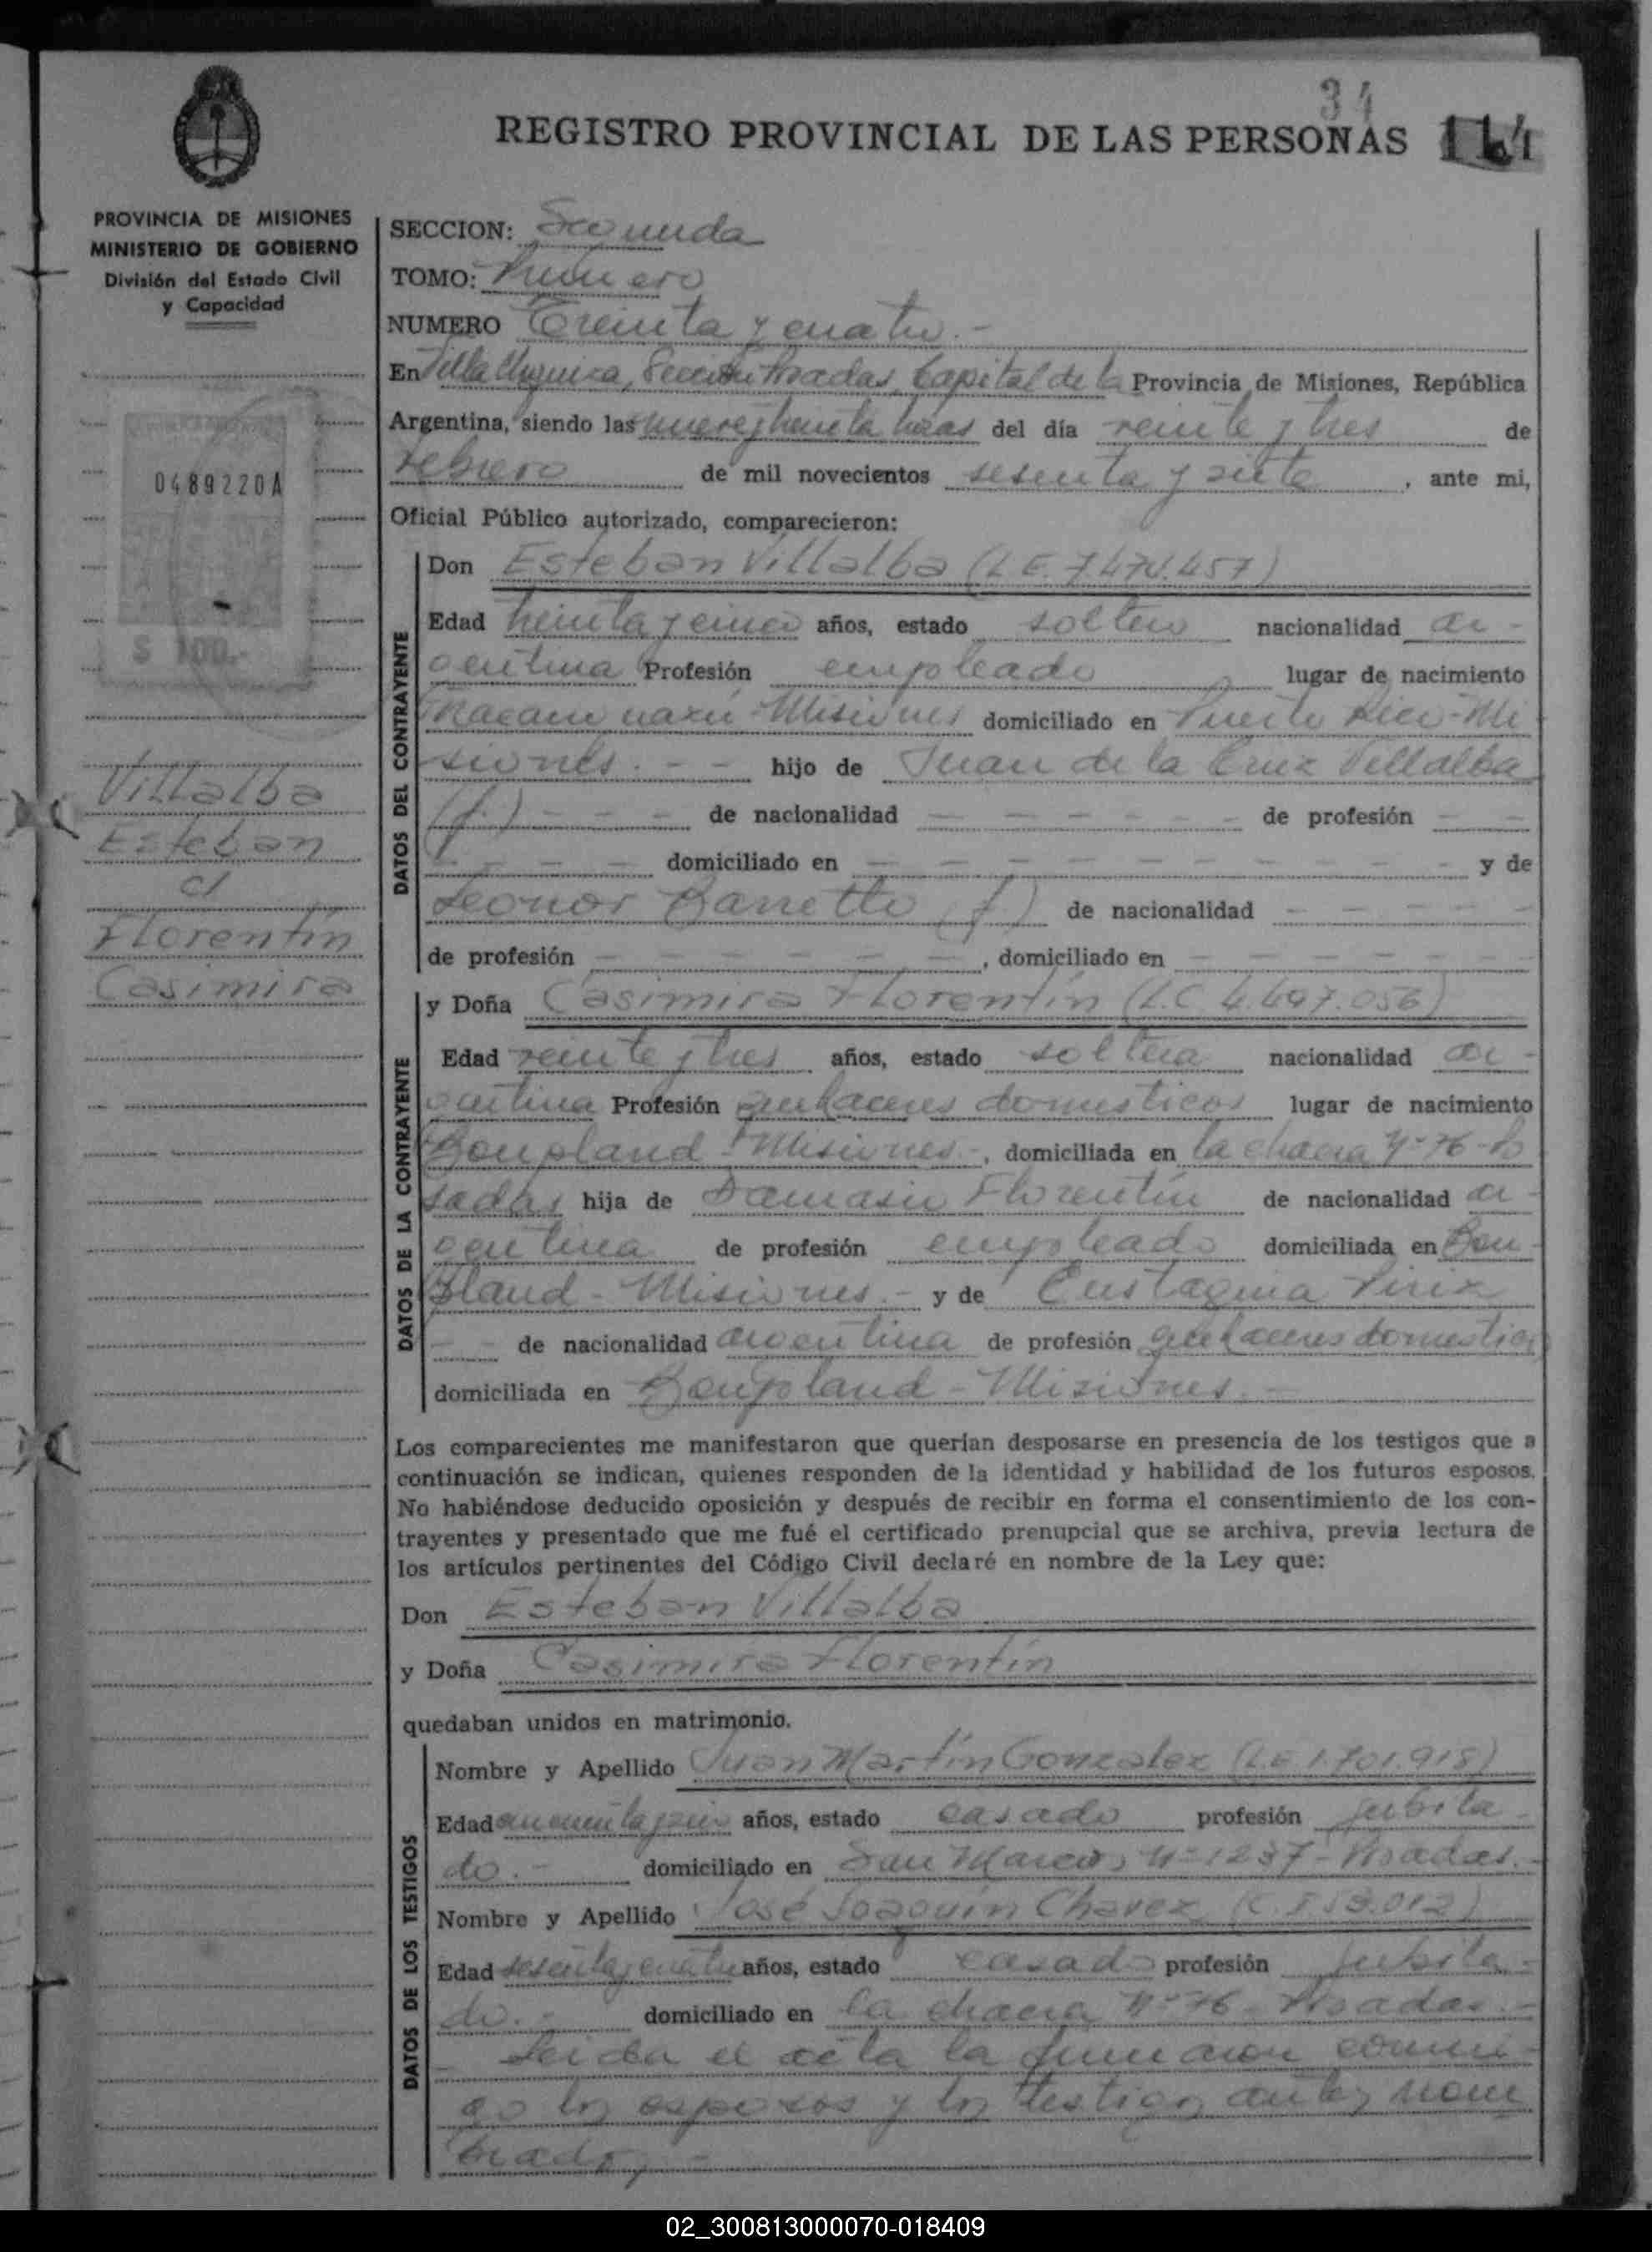 34
REGISTRO PROVINCIAL DE LAS PERSONAS
PROVINCIA DE MISIONES
MINISTERIO DE GOBIERNO
División del Estado Civil
y Capacidad
0489220A
$ 100.-
Villalba
Esteban
c/
Florentín
Casimira
SECCION: Segunda
TOMO: Primero
NUMERO Treinta y cuatro.-
En Villa Urquiza, Sección Posadas, Capital de la Provincia de Misiones, República
Argentina, siendo las nueve y treinta horas del día veinte y tres de
Febrero de mil novecientos sesenta y siete, ante mi,
Oficial Público autorizado, comparecieron:
DATOS DEL CONTRAYENTE
Don Esteban Villalba (L.E. 7.474.457)
Edad treinta y cinco años, estado soltero nacionalidad ar-
gentina Profesión empleado lugar de nacimiento
Misiones domiciliado en Puerto Rico-Mi
siones.-- hijo de Juan de la Cruz Villalba
(f.)--- de nacionalidad ------ de profesión --
---- domiciliado en ---------- y de
Leonor Barretto (f) de nacionalidad -----
de profesión ------, domiciliado en ------
DATOS DE LA CONTRAYENTE
y Doña Casimira Florentín (L.C. 4.497.056)
Edad veinte y tres años, estado soltera nacionalidad ar-
gentina Profesión quehaceres domesticos lugar de nacimiento
Bonpland-Misiones-, domiciliada en la chacra Nº 76-Po
sadas hija de Damasio Florentín de nacionalidad ar-
gentina de profesión empleado domiciliada en Bon-
pland-Misiones.- y de Eustaquia Piriz
-- de nacionalidad argentina de profesión quehaceres domesticos
domiciliada en Bonpland-Misiones.-
Los comparecientes me manifestaron que querían desposarse en presencia de los testigos que a
continuación se indican, quienes responden de la identidad y habilidad de los futuros esposos.
No habiéndose deducido oposición y después de recibir en forma el consentimiento de los con-
trayentes y presentado que me fué el certificado prenupcial que se archiva, previa lectura de
los artículos pertinentes del Código Civil declaré en nombre de la Ley que:
Don Esteban Villalba
y Doña Casimira Florentín
quedaban unidos en matrimonio.
DATOS DE LOS TESTIGOS
Nombre y Apellido Juan Martín Gonzalez (L.E. 1.701.918)
Edad años, estado casado profesión jubila-
do.- domiciliado en San Marcos Nº 1237-Posadas.-
Nombre y Apellido José Joaquín Chavez (C.I. 53.012)
Edad sesenta y cuatro años, estado casado profesión jubila-
do.- domiciliado en la chacra Nº 76-Posadas.-
- Leida el acta la firmaron conmi-
go los esposos y los testigos antes nom
brados,-
02_300813000070-018409